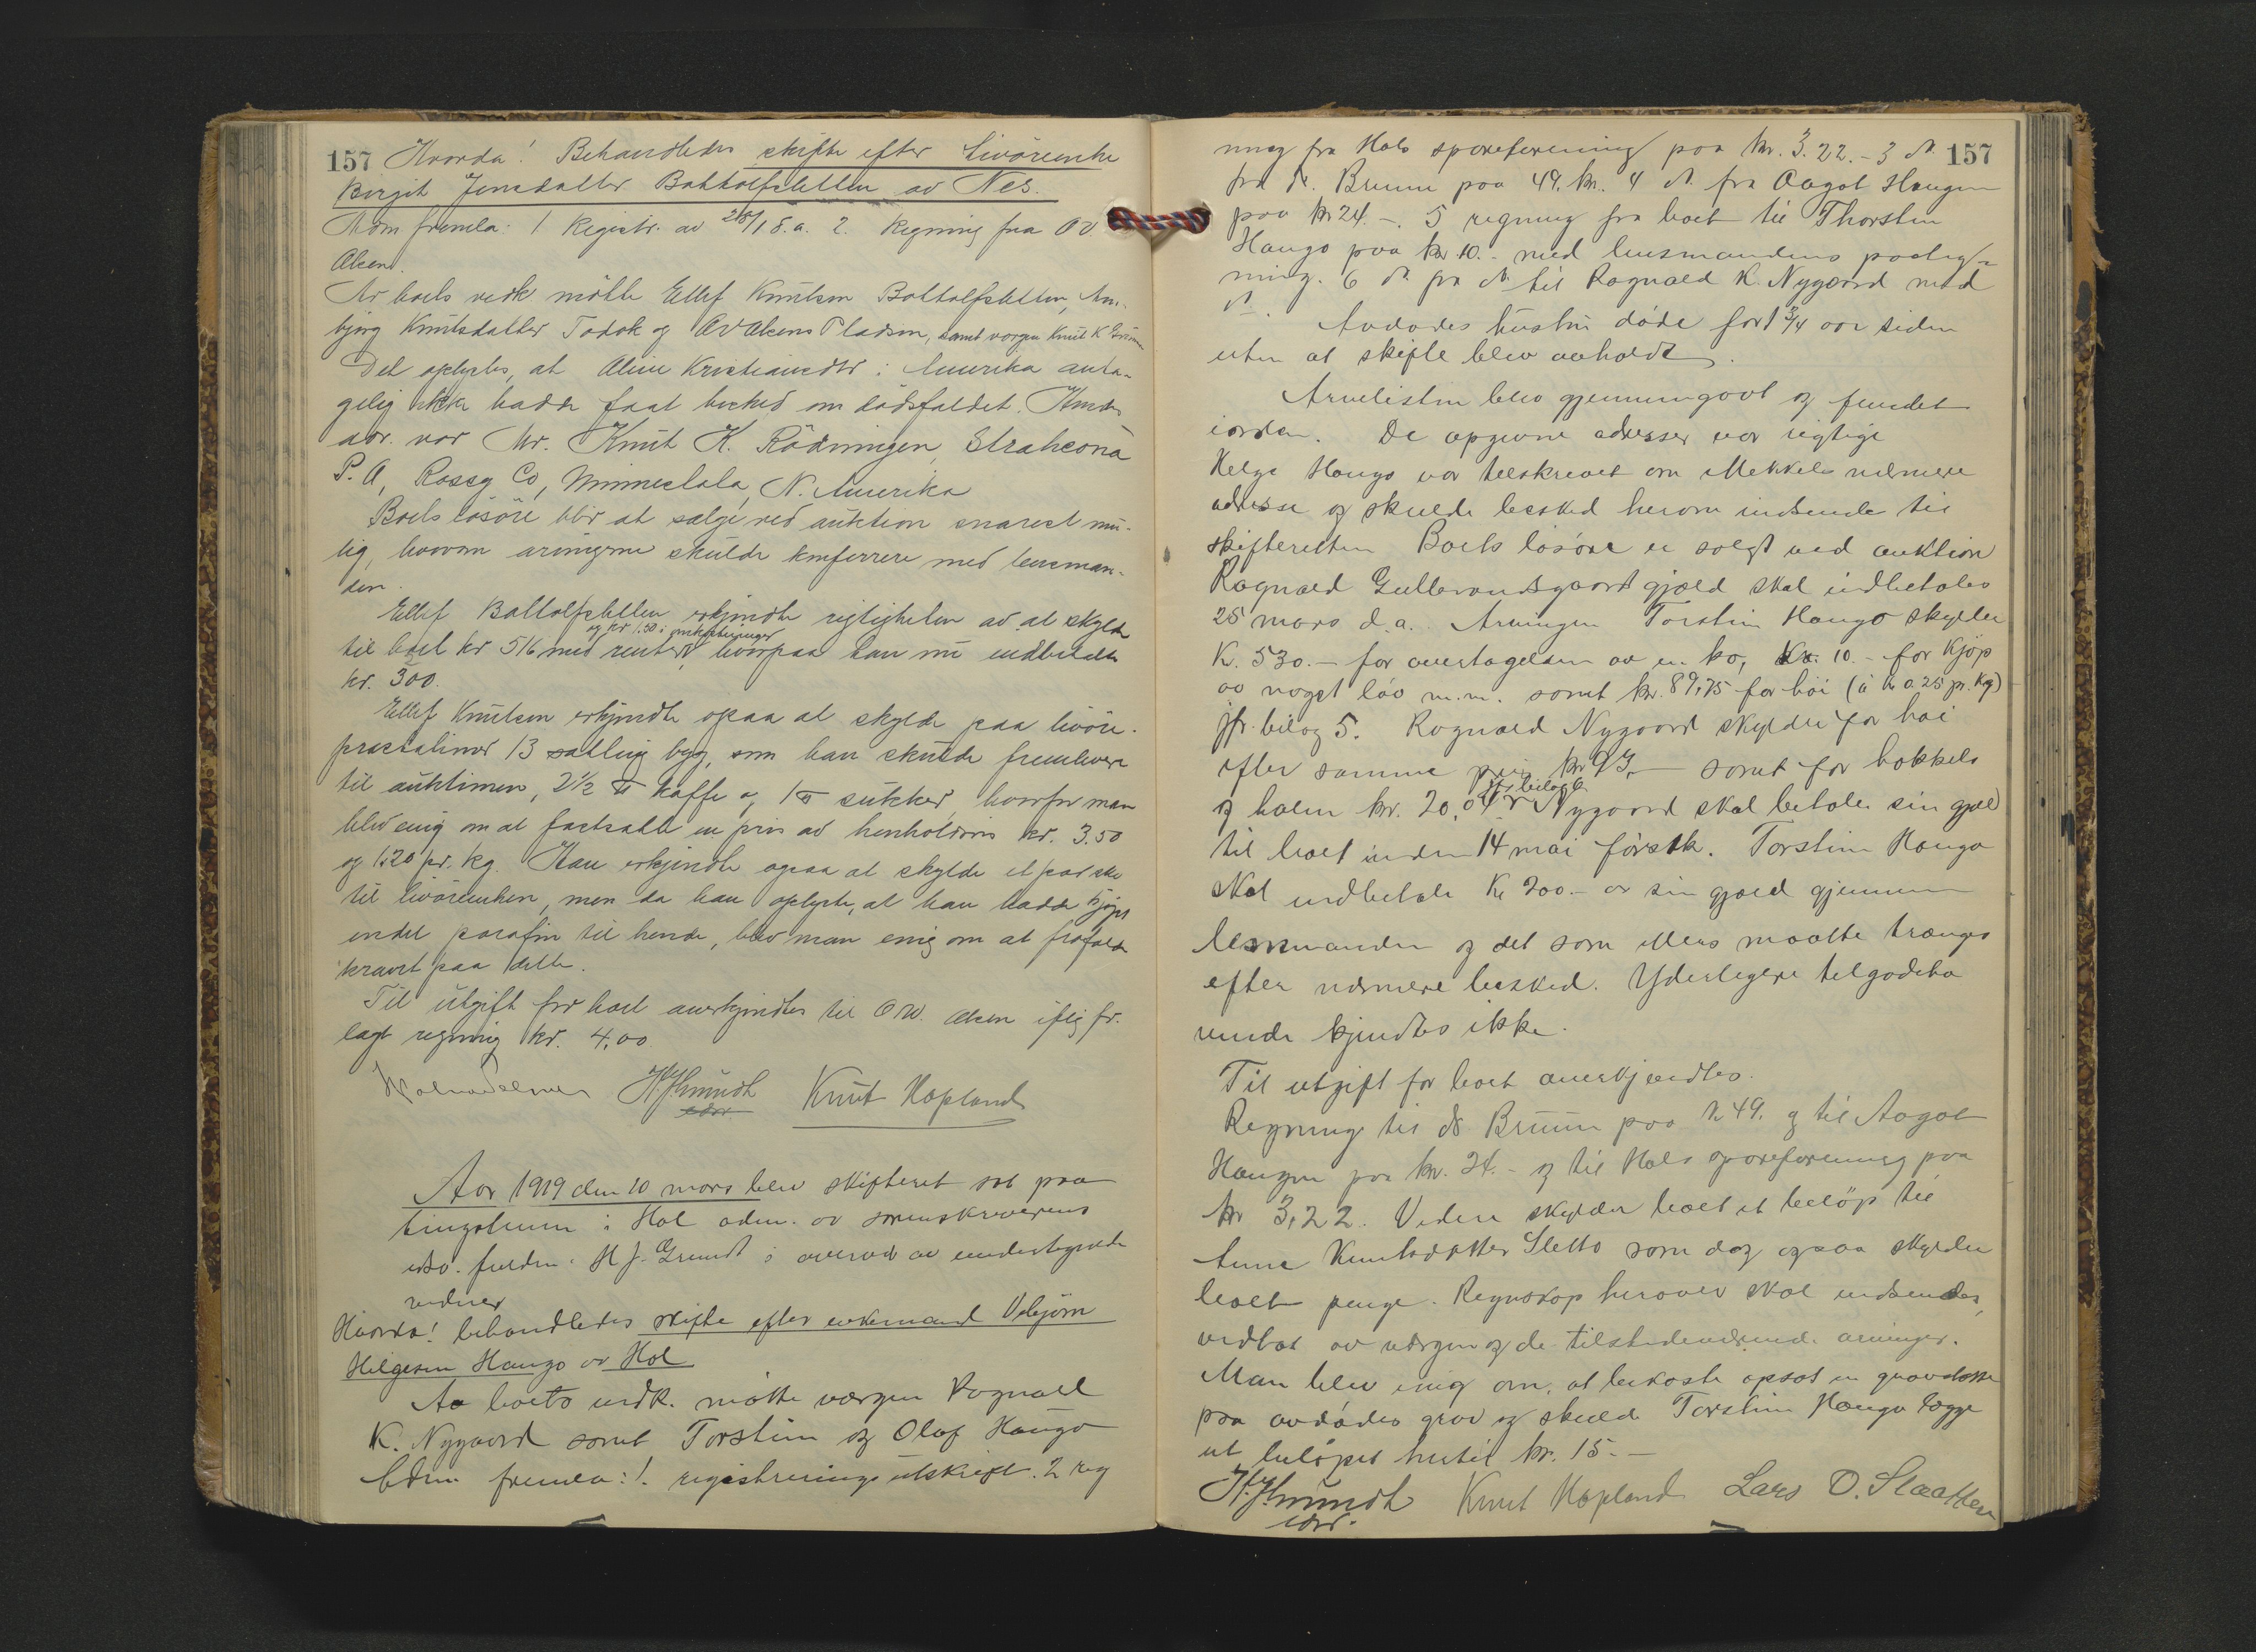 157 Hvorda! Behandledes skifte efter Livörenke
Birgit Jonsdatter Bottolfsletten av Nes.
Adm fremla: 1 Registr. av 28/1 d. a. 2. Regning fra O V
Alsen.
Av boets vedk mötte Ellef Knutsen Bottolfsletten, Am-
björg Knutsdatter Todok og O V Alsens Pladsen, samt vergen Knut K
Det oplystes, at Aline Kristiansdtr i Amerika anta-
gelig ikke hadde faat besked om dödsfaldet. Hendes
adr. var Mr. Knut K. Rödningen, Strahcona
P. A, Rossy Co, Minneslala, N. Amerika
Boets lösöre blir at sælge ved auktion snarest mu-
lig, hvorom arvingerne skulde konferrere med lensman-
den.
Ellef Bottolfsletten erkjendte rigtigheten av at skylde
til boet kr 516 med renter og kr 1.50 i hvorpaa han nu indbetalte
kr. 300.
Ellef Knutsen erkjendte ogsaa at skylde paa livöre-
præstationer 13 sætting byg, som han skulde fremlevere
til auktionen, 2 1/2 kaffe og 1 sukker, hvorfor man
blev enig om at fastsætte en pris av henholdsvis kr. 3.50
og 1.20 pr. kg. Han erkjendte ogsaa at skylde et par sko
til livörenken, men da han oplyste, at han hadde kjöpt
endel parafin til hende, blev man enig om at frafalde
kravet paa dette.
Til utgift for boet anerkjendtes til O W. Alsen iflg fr.
lagt regning kr. 4,00
H. J. Grundt Knut Hopland
edsv.
Aar 1919 den 10 mars blev skifteret sat paa
tingstuen i Hol adm. av sorenskriverens
edsv. fuldm. H J. Grundt i overvær av undertegnede
vidner
Hvorda! behandledes skifte efter enkemand Vebjörn
Helgesen Haugo av Hol
Av boets vedk. mötte værgen Rognald
K. Nygaard samt Torstein og Olaf Haugo
Adm fremla: 1. registreringsutskrift. 2 reg
ning fra Hols spareforening paa kr. 3.22. - 3 do. 157
fra dr. Bruun paa 49. kr. 4 do. fra Aagot Haugen
paa kr 24.-. 5 regning fra boet til Thorstein
Haugo paa kr 10.- med lensmandens paateg-
ning. 6 do. fra do. til Rognald K. Nygaard med
do.
Avdödes hustru döde for 1 3/4 aar siden
uten at skifte blev avholdt.
Arvelisten blev gjennemgaat og fundet
iorden. De opgivne adresser var rigtige
Helge Haugo var tilskrevet om Mekkels nærmere
adresse og skulde besked herom indsende til
skifteretten Boets lösöre er solgt ved auktion
Rognald Gullbrandsgaard gjæld skal indbetales
25 mars d.a. Arvingen Torstein Haugo skylder
K. 530.- for overtagelsen av en ko, Kr. 10.- for kjöp
av noget löv m.m. samt kr. 89,75 for höi (à kr 0.25 pr. kg)
jfr. bilag 5. Rognald Nygaard skylder for höi
efter samme pris kr 93,- samt for hakkels
og halm kr. 20,04 jfr bilag 6 Nygaard skal betale sin gjæld
til boet inden 14 mai förstk. Torstein Haugo
skal indbetale Kr 200.- av sin gjæld gjennem
lensmanden og det som ellers maatte trænges
efter nærmere besked. Yderligere tilgodeha
vende kjendtes ikke.
Til utgift for boet anerkjendtes.
Regning til dr Bruun paa kr 49. og til Aagot
Haugen paa kr. 24.- og til Hols spareforening paa
kr 3,22. Videre skylder boet et belöp til
Anne Knutsdatter Sletto som dog ogsaa skylder
boet penge. Regnskap herover skal indsendes,
vedtat av værgen og de tilstedeværende arvinger.
Man blev enig om, at bekoste opsat en gravstötte
paa avdödes grav og skulde Torstein Haugo lægge
ut belöpet hertil kr. 15.-
H. J. Grundt Knut Hopland Lars O. Slaatten
edsv.